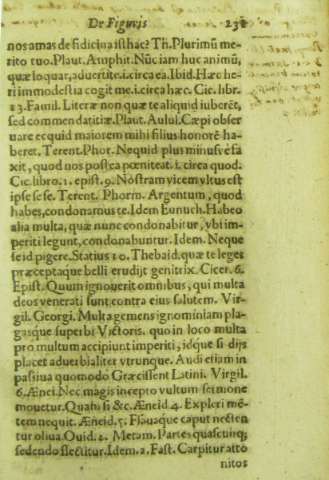 De Figuris 231
nos amas de fidicina isthac? Th. Plurimũ me-
rito tuo. Plaut. Amphit. Nũc iam huc animũ,
quæ loquar, aduertite. i. circa ea. Ibid. Hæc he-
ri immodestia cogit me. i. circa hæc. Cic. lib.
13. Famil. Literæ non quæ te aliquid iuberẽt,
sed commendatitiæ. Plaut. Aulul. Cæpi obser
uare ecquid maiorem mihi filius honorẽ ha-
beret. Terent. Phor. Nequid plus minus-ue fa
xit, quod nos postea pœniteat. i. circa quod.
Cic. libro. 1. epist. 9. Nostram vicem vltus est
ipse se se. Terent. Phorm. Argentum, quod
habes, condonamus te. Idem Eunuch. Habeo
alia multa, quæ nunc condonabitur, vbi im-
periti legunt, condonabuntur. Idem. Neque
se id pigere. Statius 10. Thebaid. quæ te leges
præceptaque belli erudijt genitrix. Cicer. 6.
Epist. Quum ignouerit omnibus, qui multa
deos venerati sunt contra eius salutem. Vir-
gil. Georgi. Multa gemens ignominiam pla-
gasque superbi Victoris. quo in loco multa
pro multum accipiunt imperiti, idque si dijs
placet aduerbialiter vtrunque. Audi etiam in
passiua quomodo Græcissent Latini. Virgil.
6. Ænei. Nec magis incepto vultum sermone
mouetur. Quàm si &c. Æneid 4. Expleri mẽ-
tem nequit. Æneid. 5. Flauaque caput necten
tur oliua. Ouid. 1. Metam. Partes quascunq;
sedendo flectitur. Idem. 2. Fast. Carpitur atto
nitos